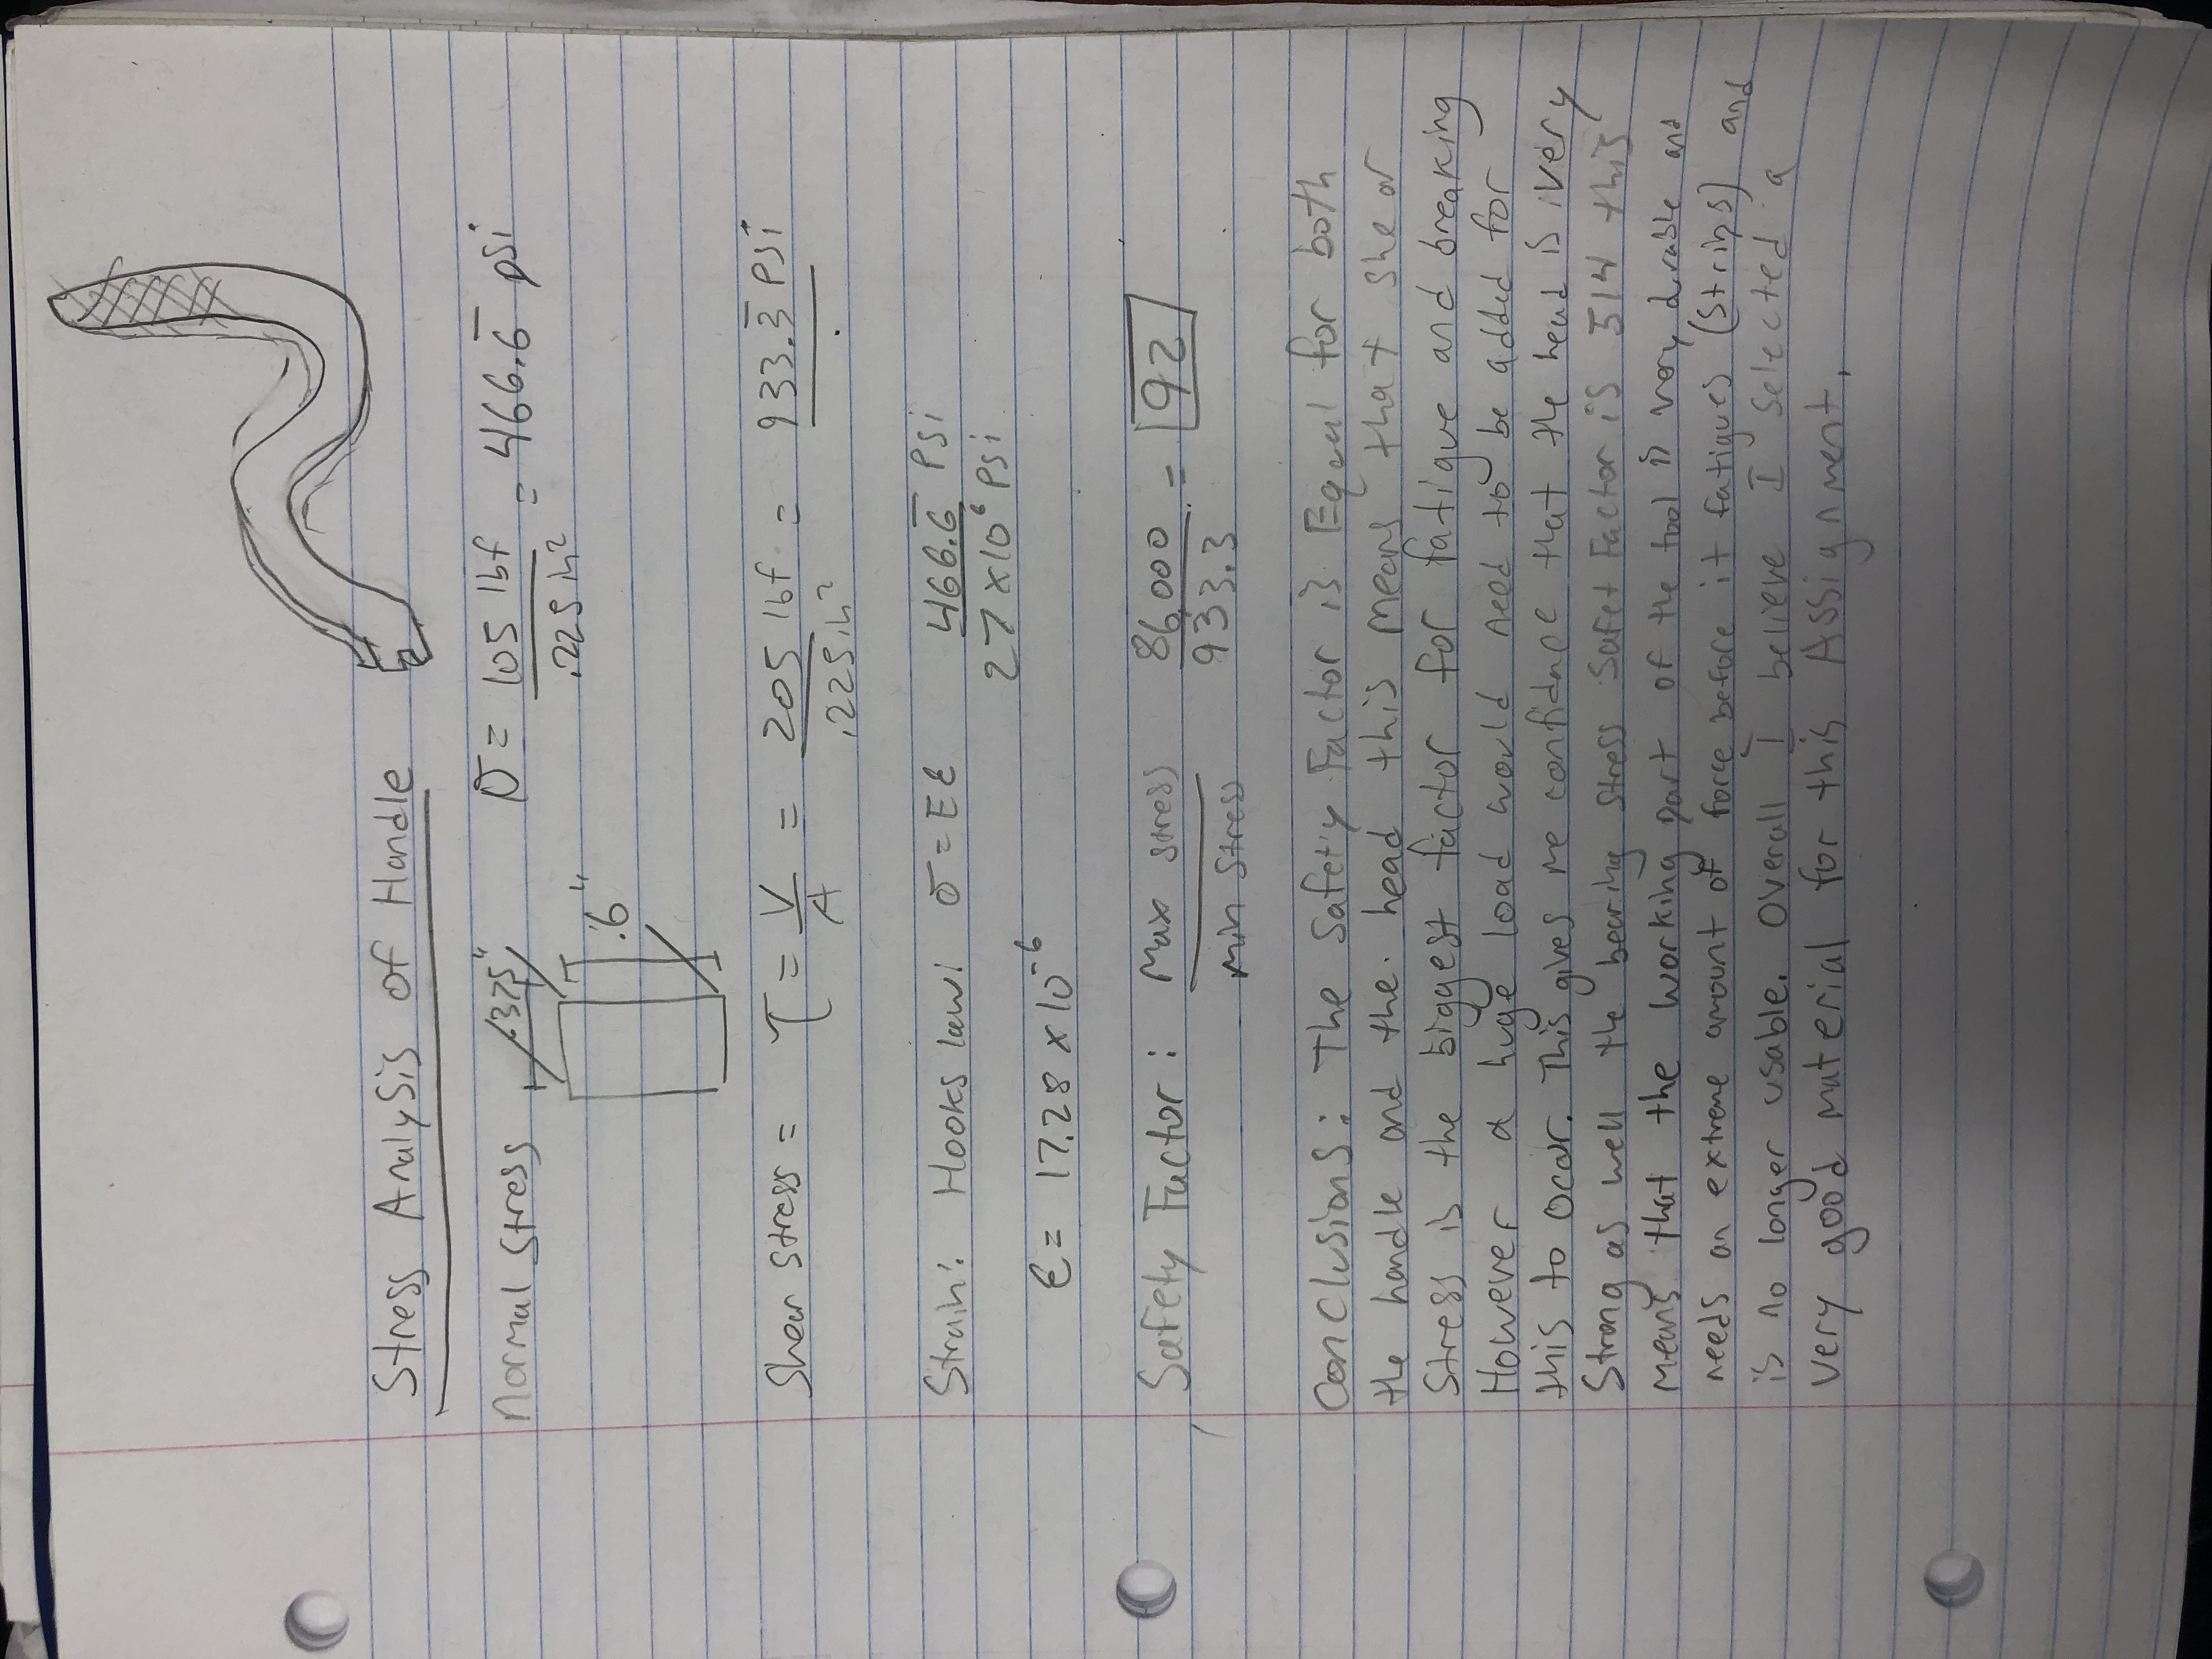 Stress Analysis of Handle
Normal Stress .375" σ = 105 lbf / .225 in² = 466.6̅ psi
.6"
Shear stress = τ = V/A = 205 lbf / .225 in² = 933.3̅ PSi
Strain: Hooks law σ = Eε 466.6̅ Psi / 27 x10⁶ Psi
ε = 17.28 x 10⁻⁶
Safety Factor: Max stress / Min Stress 86,000 / 933.3 = 92
Conclusions: The Safety Factor is Equal for both
the handle and the head this means that shear
Stress is the biggest factor for fatigue and breaking
However a huge load would need to be added for
this to occur. This gives me confidence that the head is very
Strong as well the bearing stress Safet Factor is 514 this
means that the working part of the tool is very durable and
needs an extreme amount of force before it fatigues (Strips) and
is no longer usable. Overall I believe I selected a
very good material for this Assignment.